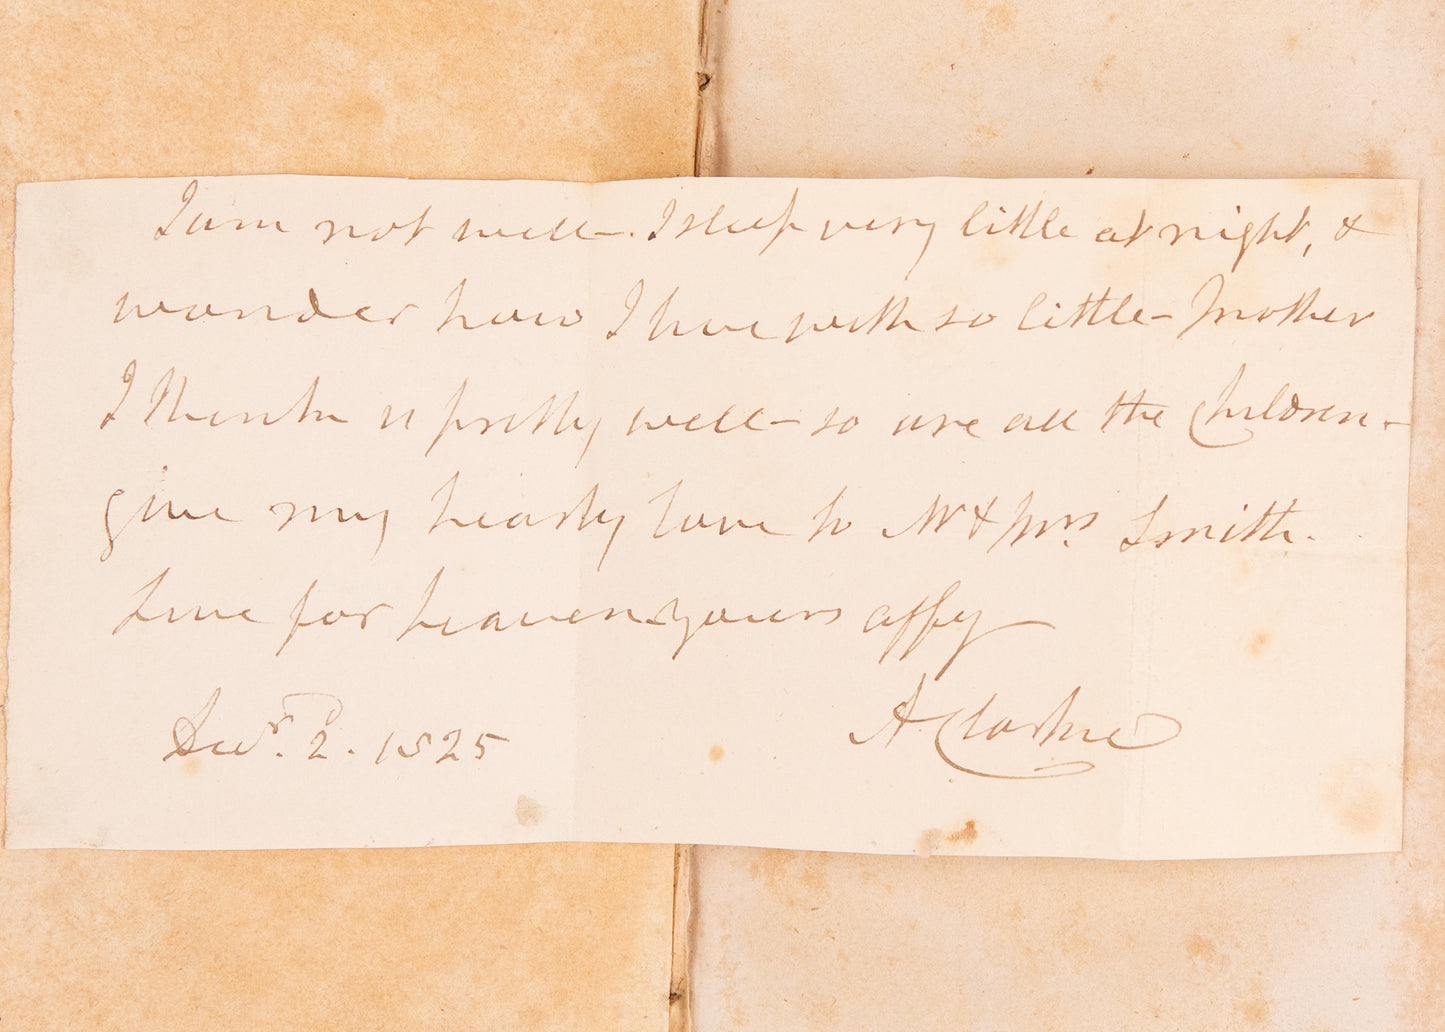 I am not well –. I sleep very little at night, &
wonder how I live with so little – Mother
I think is pretty well – so are all the Children –
give my hearty love to Mr & Mrs. Smith.
Live for heaven yours affy –
A. Clarke
Decr. 2. 1825